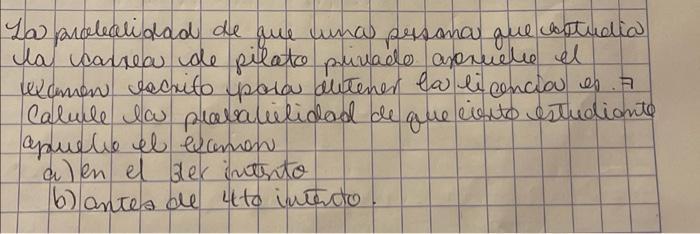 La probabilidad de que una persona que estudia
la carrea de piloto privado apruebe el
examen escrito para obtener la licencia es .7
Calcule la probabilidad de que cierto estudiante
apruebe el examen
a) en el 3er intento
b) antes de 4to intento.